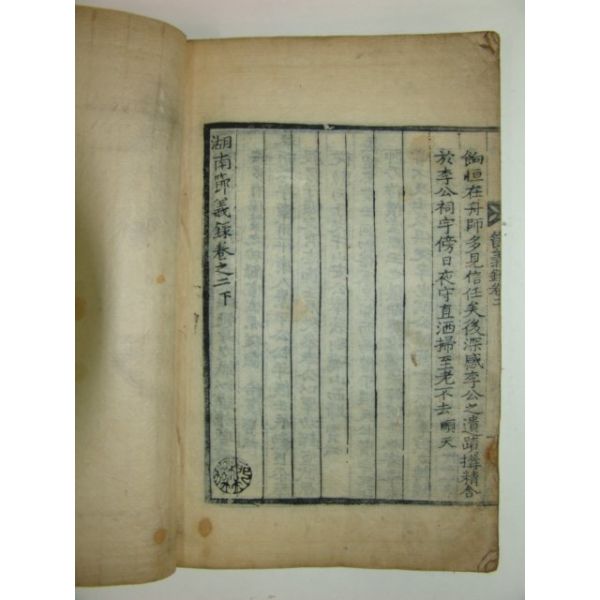 節義錄卷二
餉恒在舟師多見信任矣後深感李公之遺躅搆精舍
於李公祠宇傍日夜守直洒掃至老不去 順天
湖南節義錄卷之二下